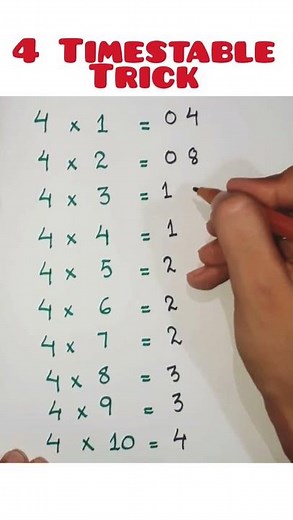 4 Timestable
Trick
4 × 1 = 04
4 × 2 = 08
4 × 3 = 1
4 × 4 = 1
4 × 5 = 2
4 × 6 = 2
4 × 7 = 2
4 × 8 = 3
4 × 9 = 3
4 × 10 = 4